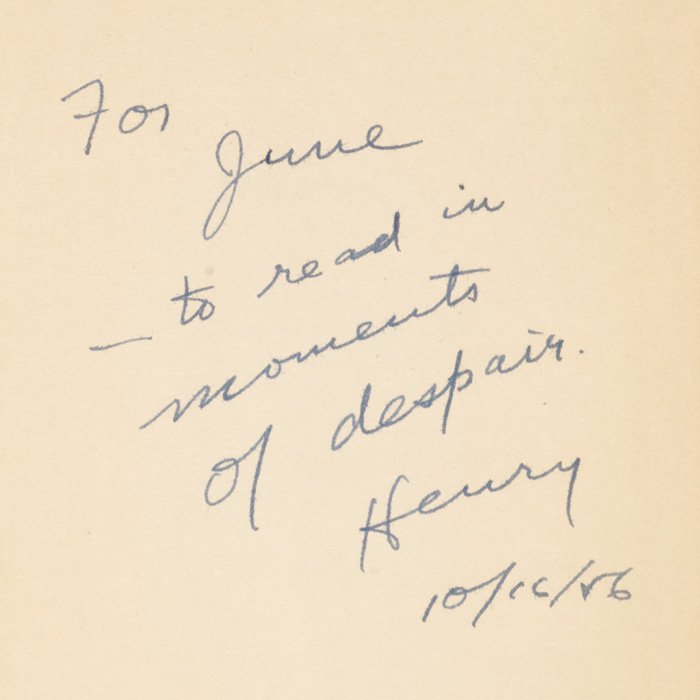 For
June
— to read in
moments
of despair.
Henry
10/16/56